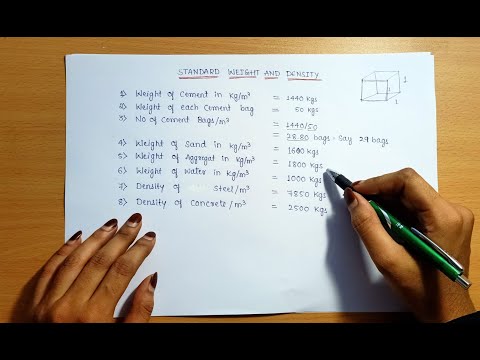 STANDARD WEIGHT AND DENSITY
1) Weight of Cement in kg/m³ = 1440 kgs
2) Weight of each Cement bag = 50 kgs
3) No of Cement Bags/m³ = 1440/50
= 28.80 bags - Say 29 bags
4) Weight of Sand in kg/m³ = 1600 kgs
5) Weight of Aggregat in kg/m³ = 1800 kgs
6) Weight of Water in kg/m³ = 1000 kgs
7) Density of Steel/m³ = 7850 kgs
8) Density of Concrete/m³ = 2500 kgs
1
1